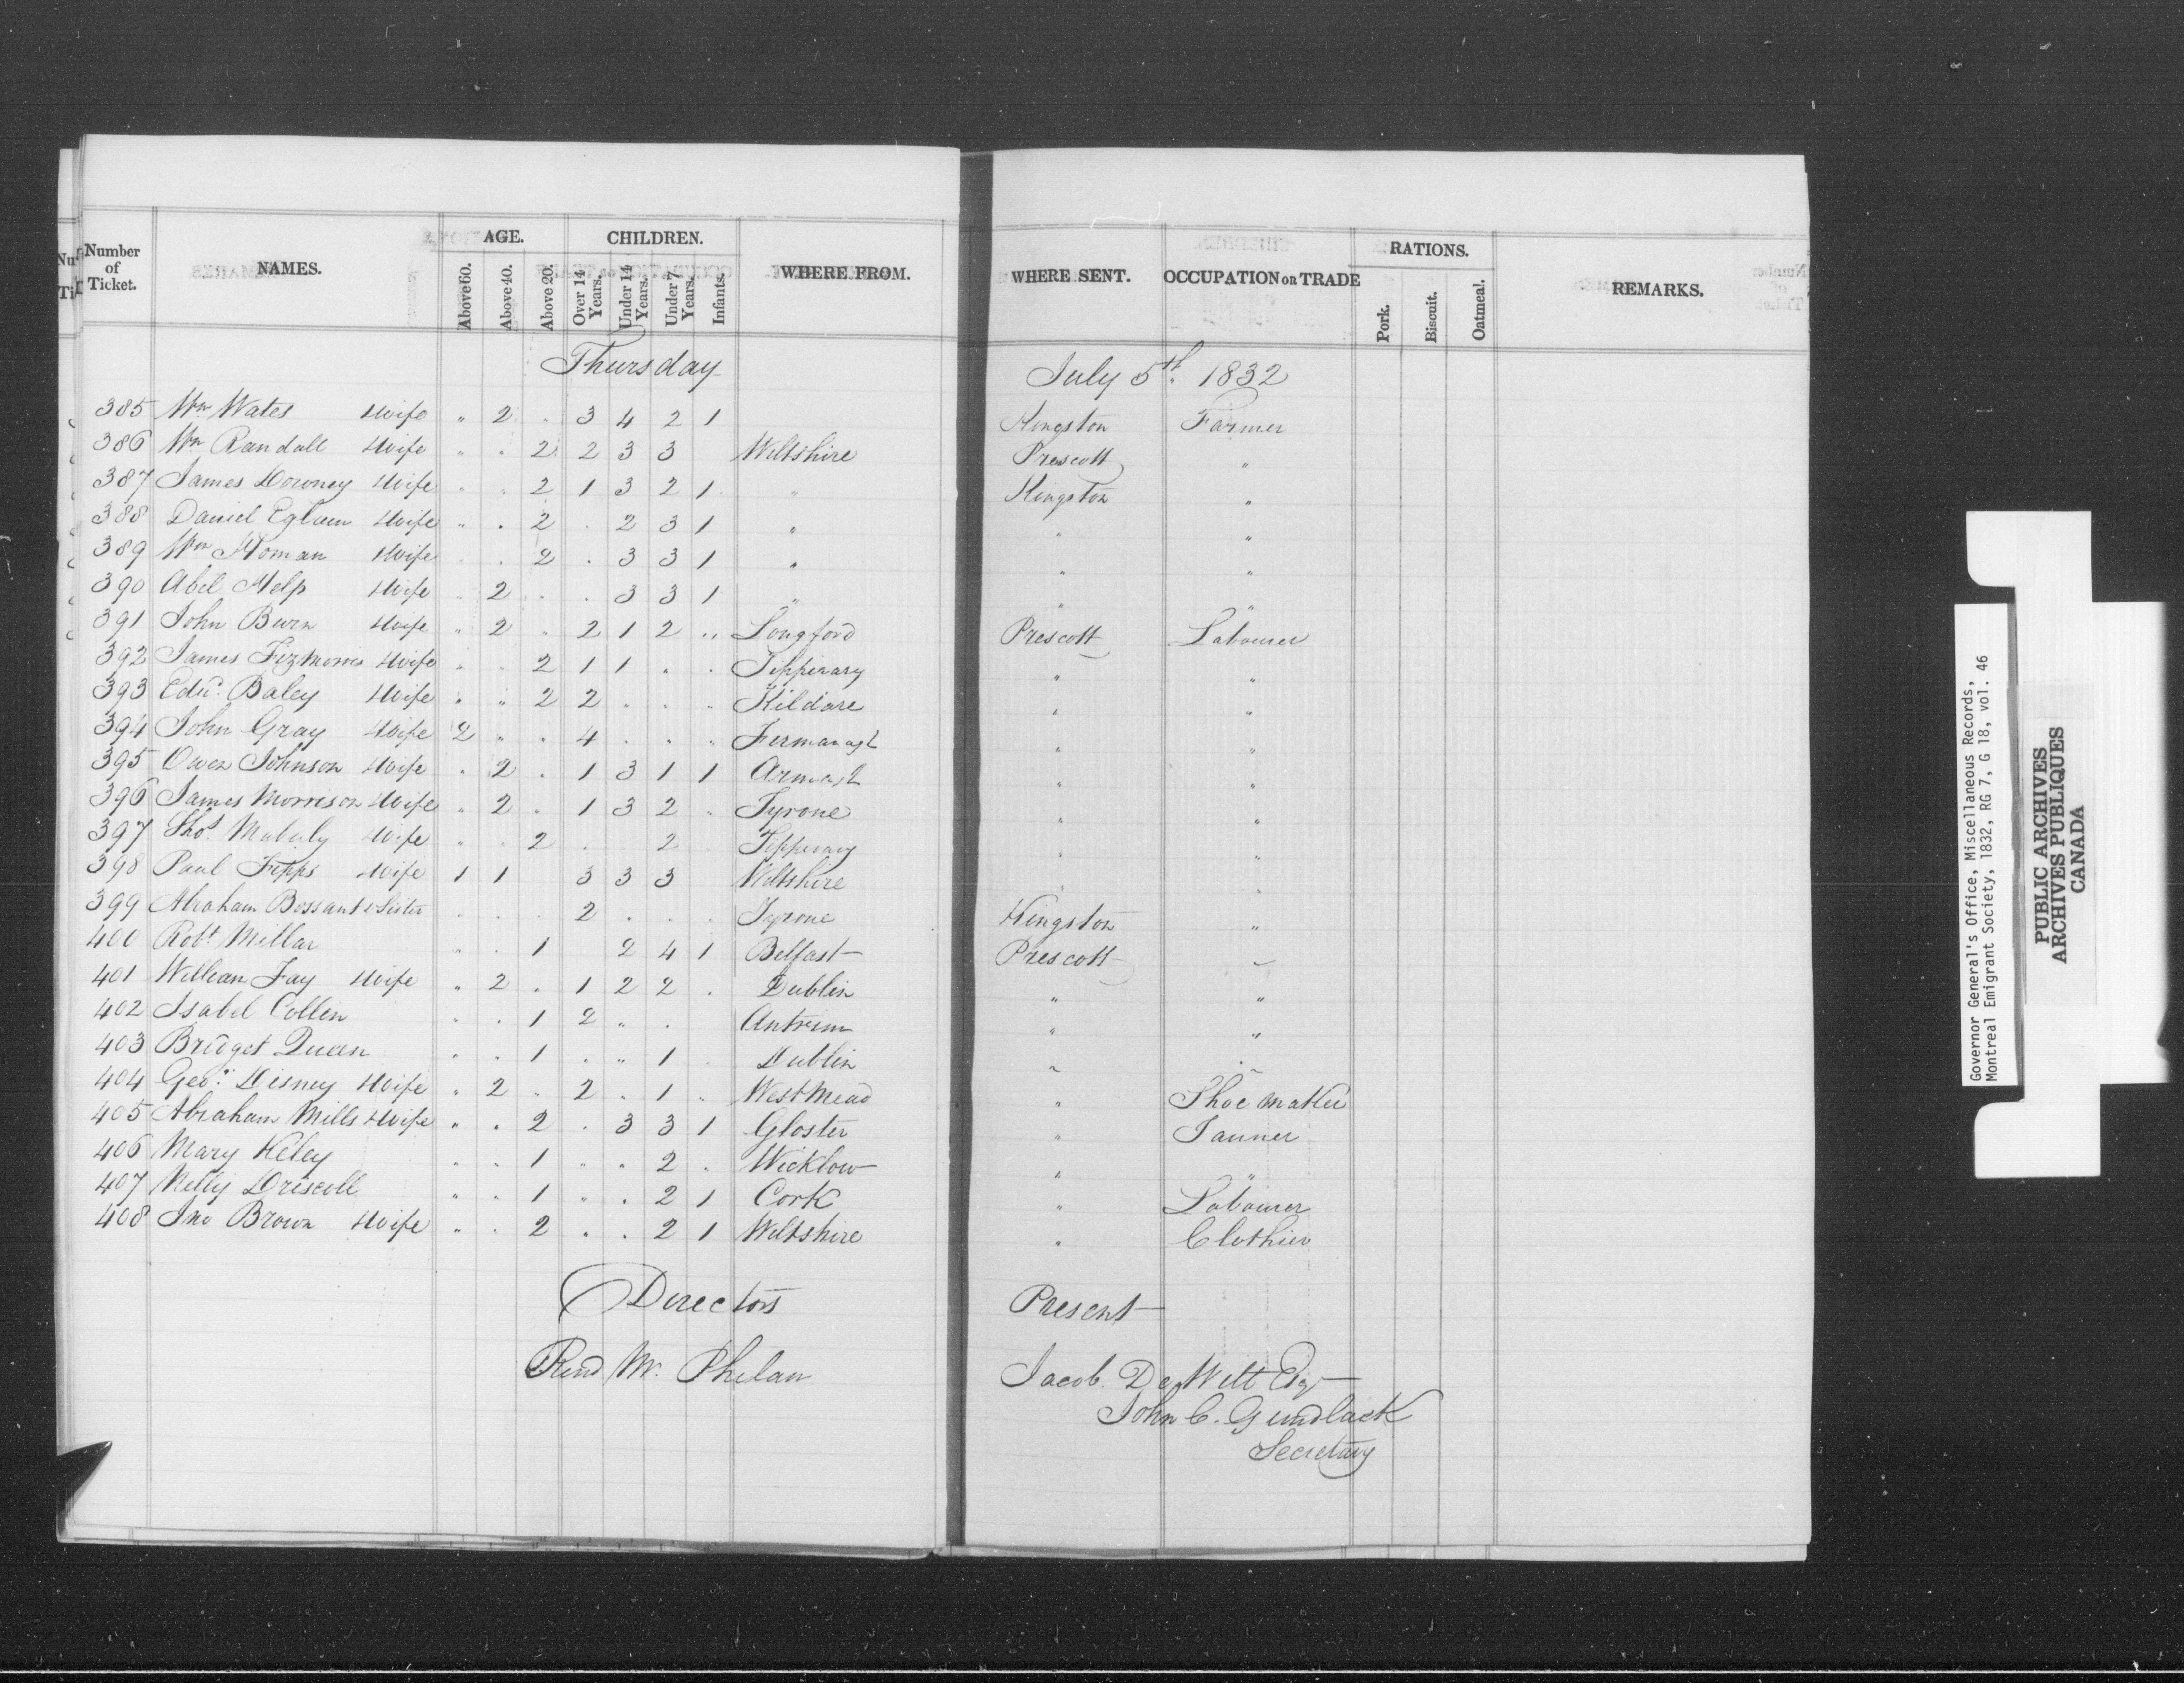 Number of Ticket. NAMES. AGE. Above 60. Above 40. Above 20. CHILDREN. Over 14 Years. Under 14 Years. Under 7 Years. Infants. WHERE FROM. WHERE SENT. OCCUPATION OR TRADE RATIONS. Pork. Biscuit. Oatmeal. REMARKS.
Thursday July 5th. 1832
385 Wm Wates Wife " 2 . 3 4 2 1 Kingston Farmer
386 Wm Randall Wife " . 2 2 3 3 Wiltshire Prescott "
387 James Downey Wife " " 2 1 3 2 1 " Kingston "
388 Daniel Eglam Wife " . 2 . 2 3 1 " " "
389 Wm Homan Wife . . 2 . 3 3 1 " " "
390 Abel Help Wife " 2 . . 3 3 1 " " "
391 John Burn Wife " 2 . 2 1 2 " Longford Prescott Labourer
392 James Fizmorris Wife " . 2 1 1 . . Tipperary " "
393 Edwd. Baley Wife " " 2 2 . . " Kildare " "
394 John Gray Wife 2 " . 4 . . " Fermanagh " "
395 Owen Johnson Wife . 2 . 1 3 1 1 Armagh " "
396 James Morrison Wife " 2 . 1 3 2 " Tyrone " "
397 Thos. Maberly Wife " . 2 . 2 Tipperary " "
398 Paul Fipps Wife 1 1 3 3 3 Wiltshire " "
399 Abraham Bossant & Sister . . . 2 . . . Tyrone Kingston "
400 Robt Millar " . 1 2 4 1 Belfast Prescott "
401 William Fay Wife " 2 . 1 2 2 . Dublin " "
402 Isabel Collin " . 1 2 " . Antrim " "
403 Bridget Queen " . 1 . " 1 . Dublin " "
404 Geo: Disney Wife " 2 . 2 . 1 " West Mead " Shoe maker
405 Abraham Mills Wife " . 2 . 3 3 1 Gloster " Tanner
406 Mary Keley " . 1 " " 2 . Wicklow " "
407 Nelly Driscoll " " 1 " . 2 1 Cork " Labourer
408 Jno Brown Wife " . 2 . . 2 1 Wiltshire " Clothier
Directors Present
Revd Mr. Phelan Jacob. De Witt Esqr
John C. Gundlack
Secretary
Governor General's Office, Miscellaneous Records,
Montreal Emigrant Society, 1832, RG 7, G 18, vol. 46
PUBLIC ARCHIVES
ARCHIVES PUBLIQUES
CANADA